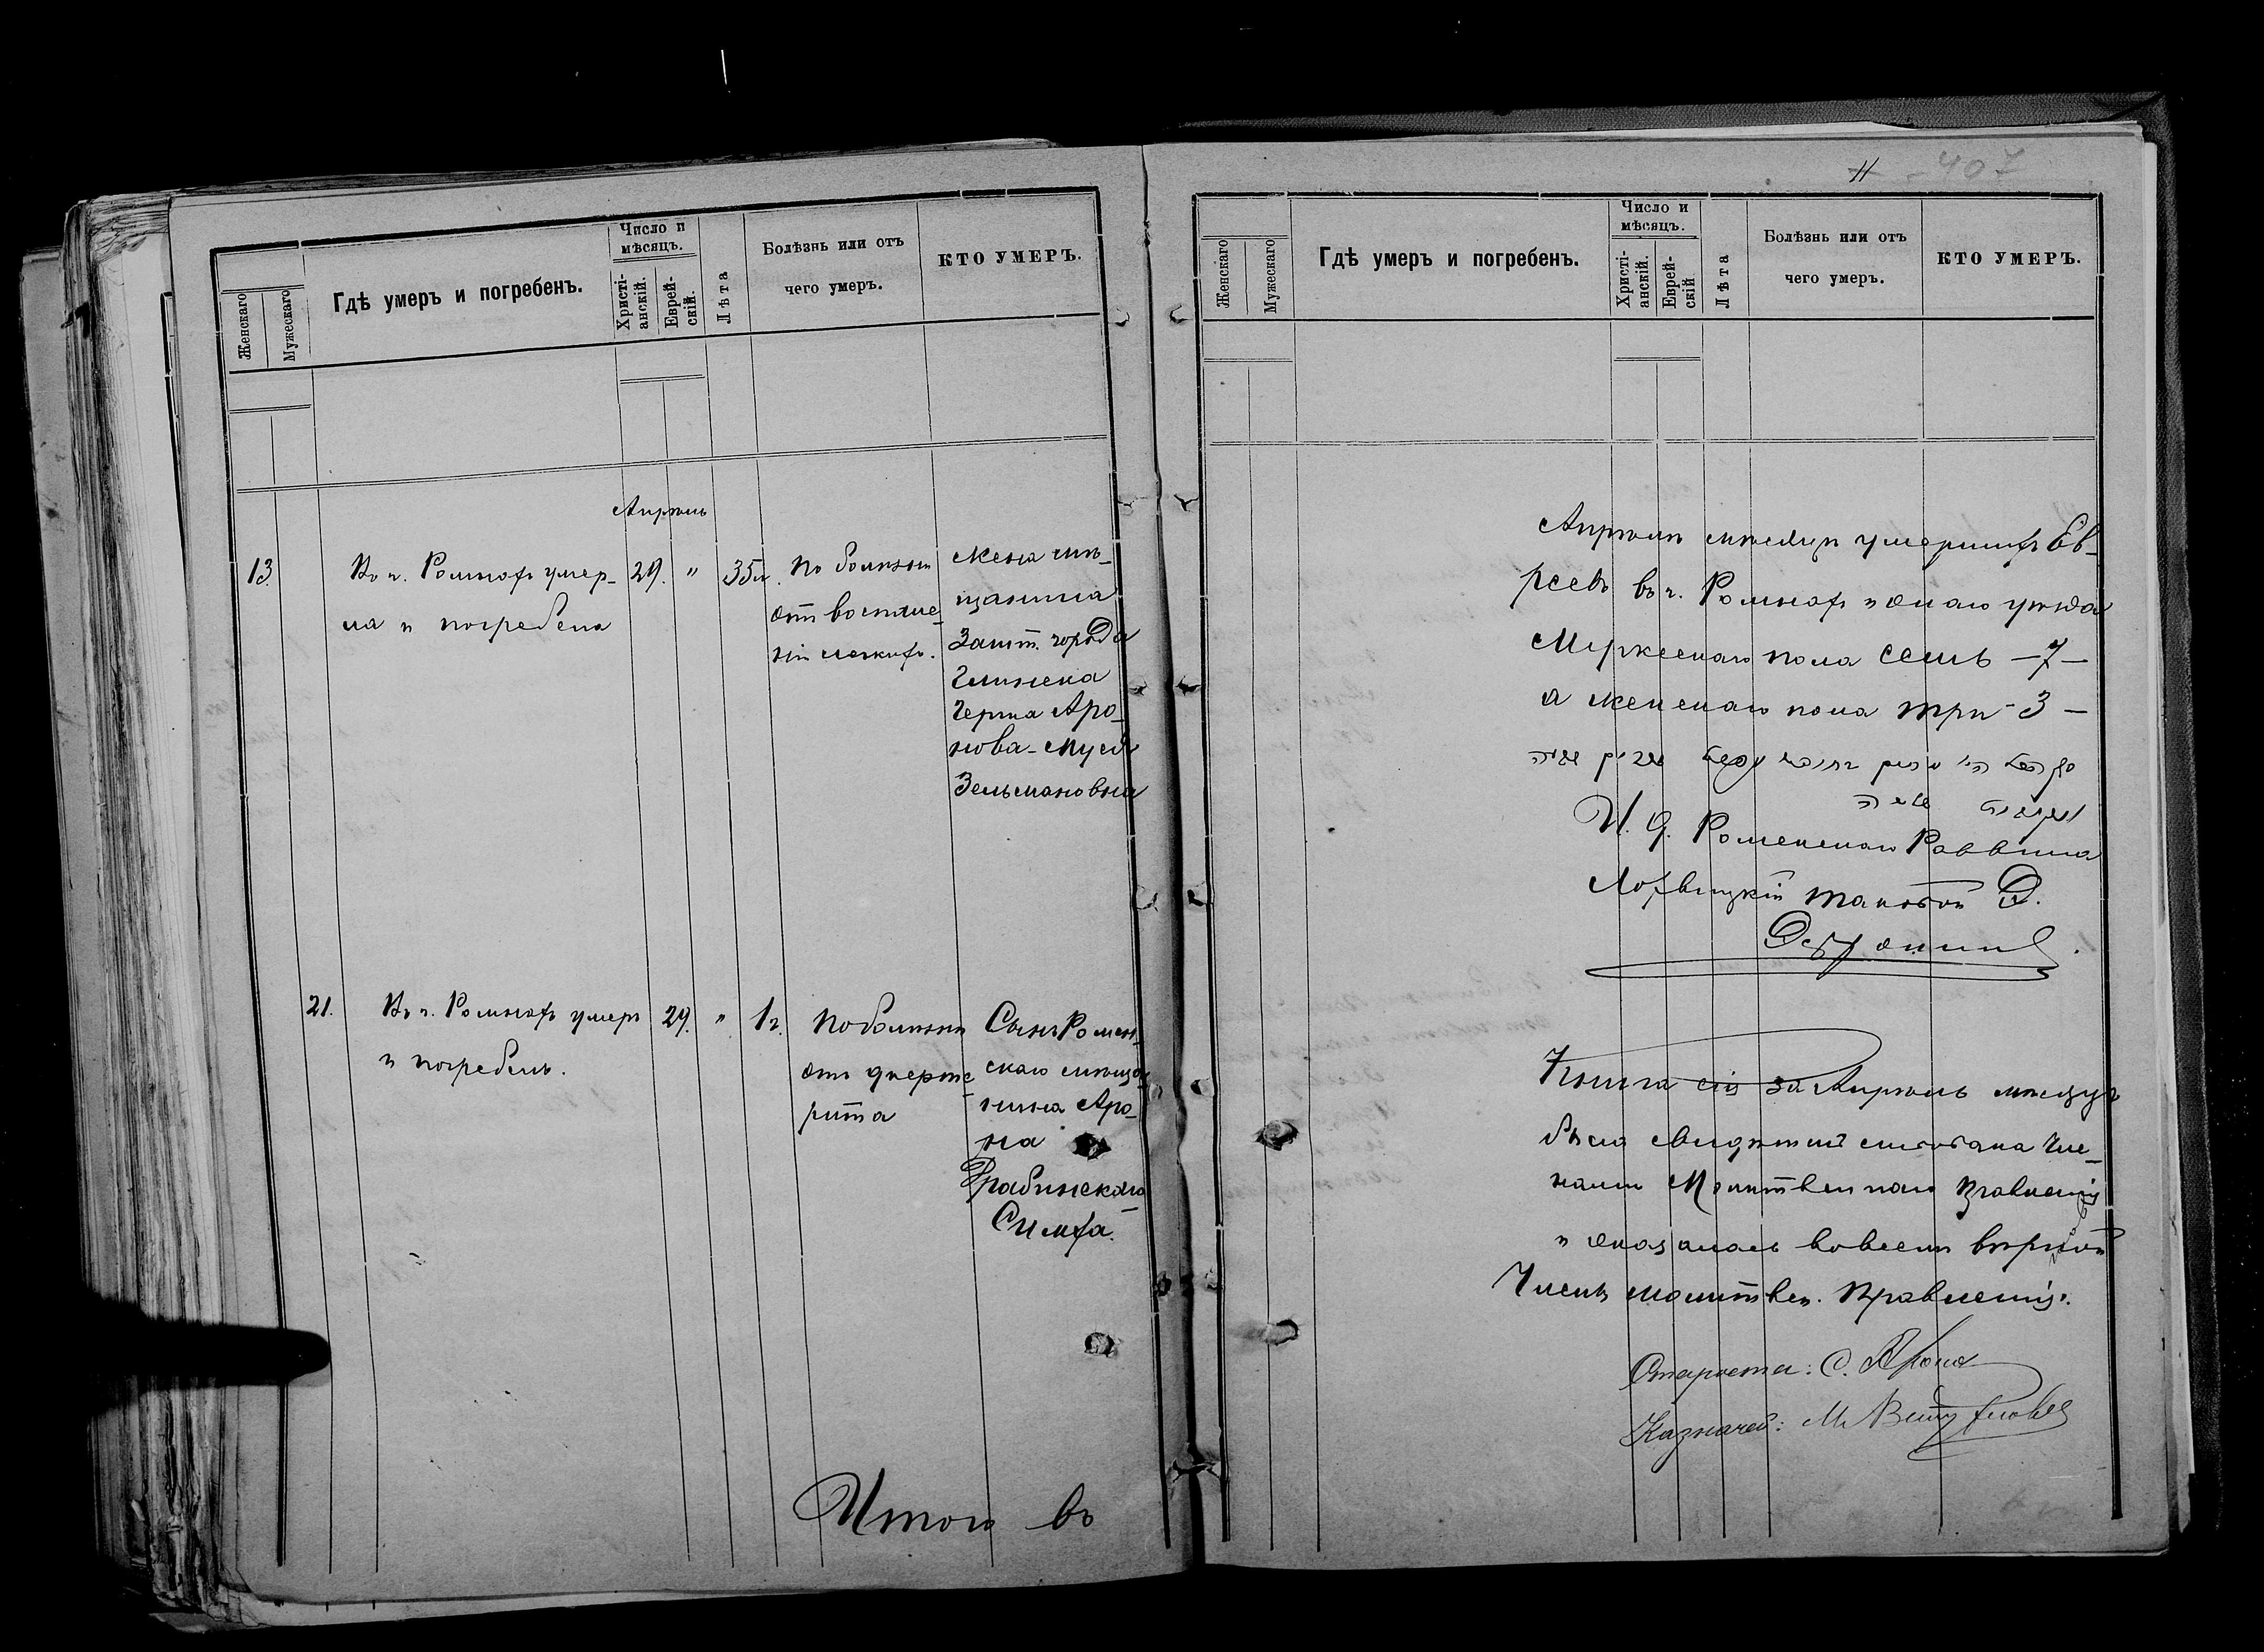 Женскаго
Мужескаго
Гдѣ умеръ и погребенъ.
Число и мѣсяцъ.
Христі-анскій.
Еврей-скій.
Лѣта
Болѣзнь или отъ
чего умеръ.
КТО УМЕРЪ.
Апрѣль
13.
Въ г. Ромнахъ умер-
ла и погребена
29.
"
35 л.
По болѣзни
отъ воспале-
нія легкихъ.
Жена мѣ-
щанина
Зашт. города
Глинска
Черна Аро-
нова-Мусій
Зельмановна
21.
Въ г. Ромнахъ умеръ
и погребенъ.
29.
"
1 г.
По болѣзни
отъ
рита
Сынъ Ромен-
скаго мѣща-
нина Аро-
на
Грабинскаго
Симха.
Итого въ
11 - 407
Женскаго
Мужескаго
Гдѣ умеръ и погребенъ.
Число и мѣсяцъ.
Христі-анскій.
Еврей-скій
Лѣта
Болѣзнь или отъ
чего умеръ.
КТО УМЕРЪ.
Апрѣль мѣсяцъ умершихъ Ев-
реевъ въ г. Ромнахъ и онаго уѣзда
Мужескаго пола семь — 7 —
а женскаго пола три - 3 —
И. д. Роменскаго Раввина
Лохвицкій таковой Д.
Книга сія за Апрѣль мѣсяцъ
была свидѣтельствована Чле-
нами Молитвеннаго Правленія
и оказалась вовсемъ вѣрной
Члены Молитвен. Правленія:
Староста: С.
Казначей: М.